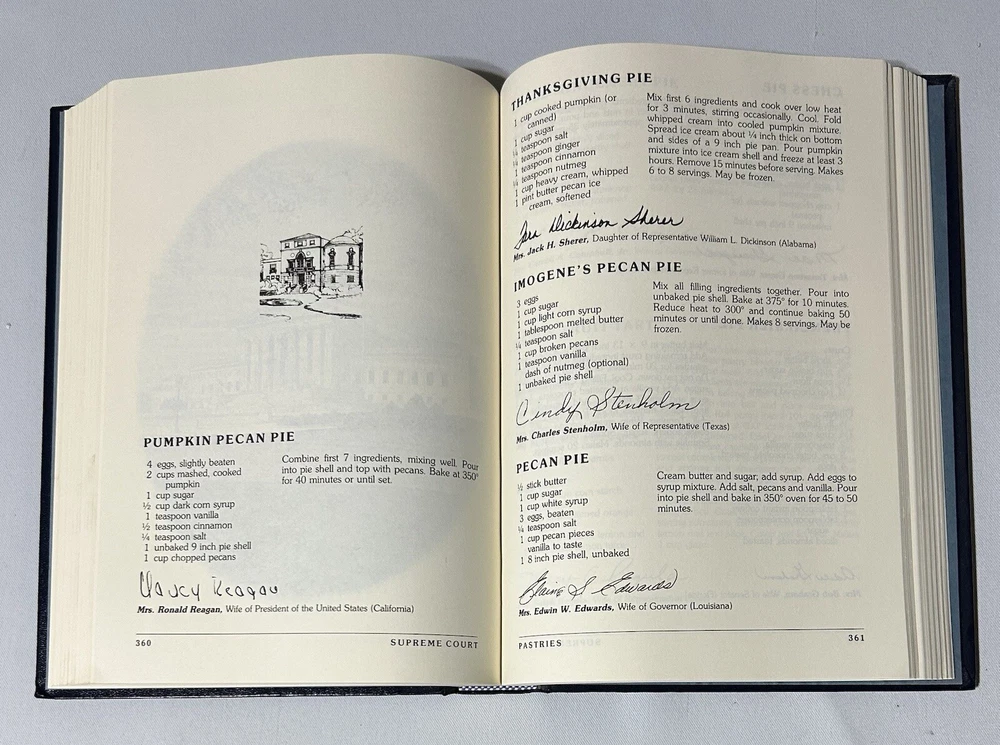 PUMPKIN PECAN PIE
4 eggs, slightly beaten
2 cups mashed, cooked
pumpkin
1 cup sugar
½ cup dark corn syrup
1 teaspoon vanilla
½ teaspoon cinnamon
¼ teaspoon salt
1 unbaked 9 inch pie shell
1 cup chopped pecans
Combine first 7 ingredients, mixing well. Pour
into pie shell and top with pecans. Bake at 350°
for 40 minutes or until set.
Nancy Reagan
Mrs. Ronald Reagan, Wife of President of the United States (California)
360
SUPREME COURT
THANKSGIVING PIE
1 cup cooked pumpkin (or
canned)
1 cup sugar
¼ teaspoon salt
¼ teaspoon ginger
1 teaspoon cinnamon
¼ teaspoon nutmeg
1 cup heavy cream, whipped
1 pint butter pecan ice
cream, softened
Mix first 6 ingredients and cook over low heat
for 3 minutes, stirring occasionally. Cool. Fold
whipped cream into cooled pumpkin mixture.
Spread ice cream about ¼ inch thick on bottom
and sides of a 9 inch pie pan. Pour pumpkin
mixture into ice cream shell and freeze at least 3
hours. Remove 15 minutes before serving. Makes
6 to 8 servings. May be frozen.
Dickinson Sherer
Mrs. Jack H. Sherer, Daughter of Representative William L. Dickinson (Alabama)
IMOGENE'S PECAN PIE
3 eggs
1 cup sugar
1 cup light corn syrup
1 tablespoon melted butter
¼ teaspoon salt
1 cup broken pecans
1 teaspoon vanilla
dash of nutmeg (optional)
1 unbaked pie shell
Mix all filling ingredients together. Pour into
unbaked pie shell. Bake at 375° for 10 minutes.
Reduce heat to 300° and continue baking 50
minutes or until done. Makes 8 servings. May be
frozen.
Cindy Stenholm
Mrs. Charles Stenholm, Wife of Representative (Texas)
PECAN PIE
½ stick butter
1 cup sugar
1 cup white syrup
3 eggs, beaten
¼ teaspoon salt
1 cup pecan pieces
vanilla to taste
1 8 inch pie shell, unbaked
Cream butter and sugar; add syrup. Add eggs to
syrup mixture. Add salt, pecans and vanilla. Pour
into pie shell and bake in 350° oven for 45 to 50
minutes.
Elaine S Edwards
Mrs. Edwin W. Edwards, Wife of Governor (Louisiana)
PASTRIES
361